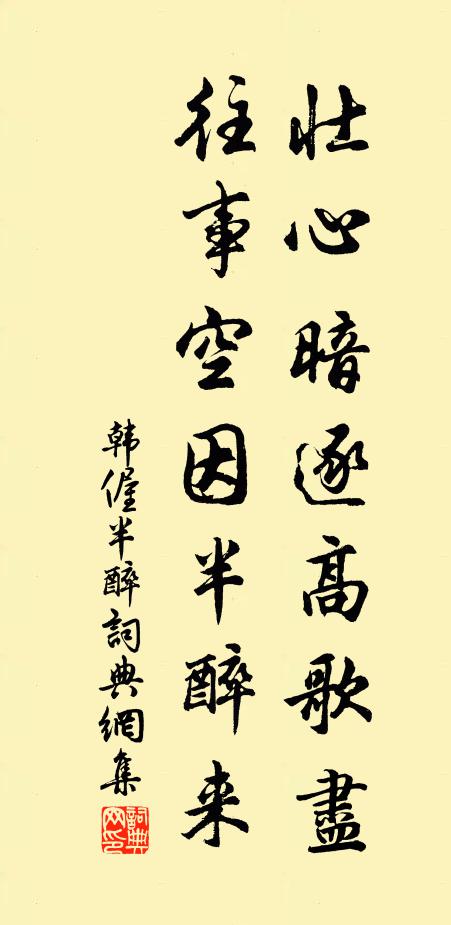 壮心暗逐高歌盡
往事空因半醉来
韩偓半醉詞典網集
詞典网印